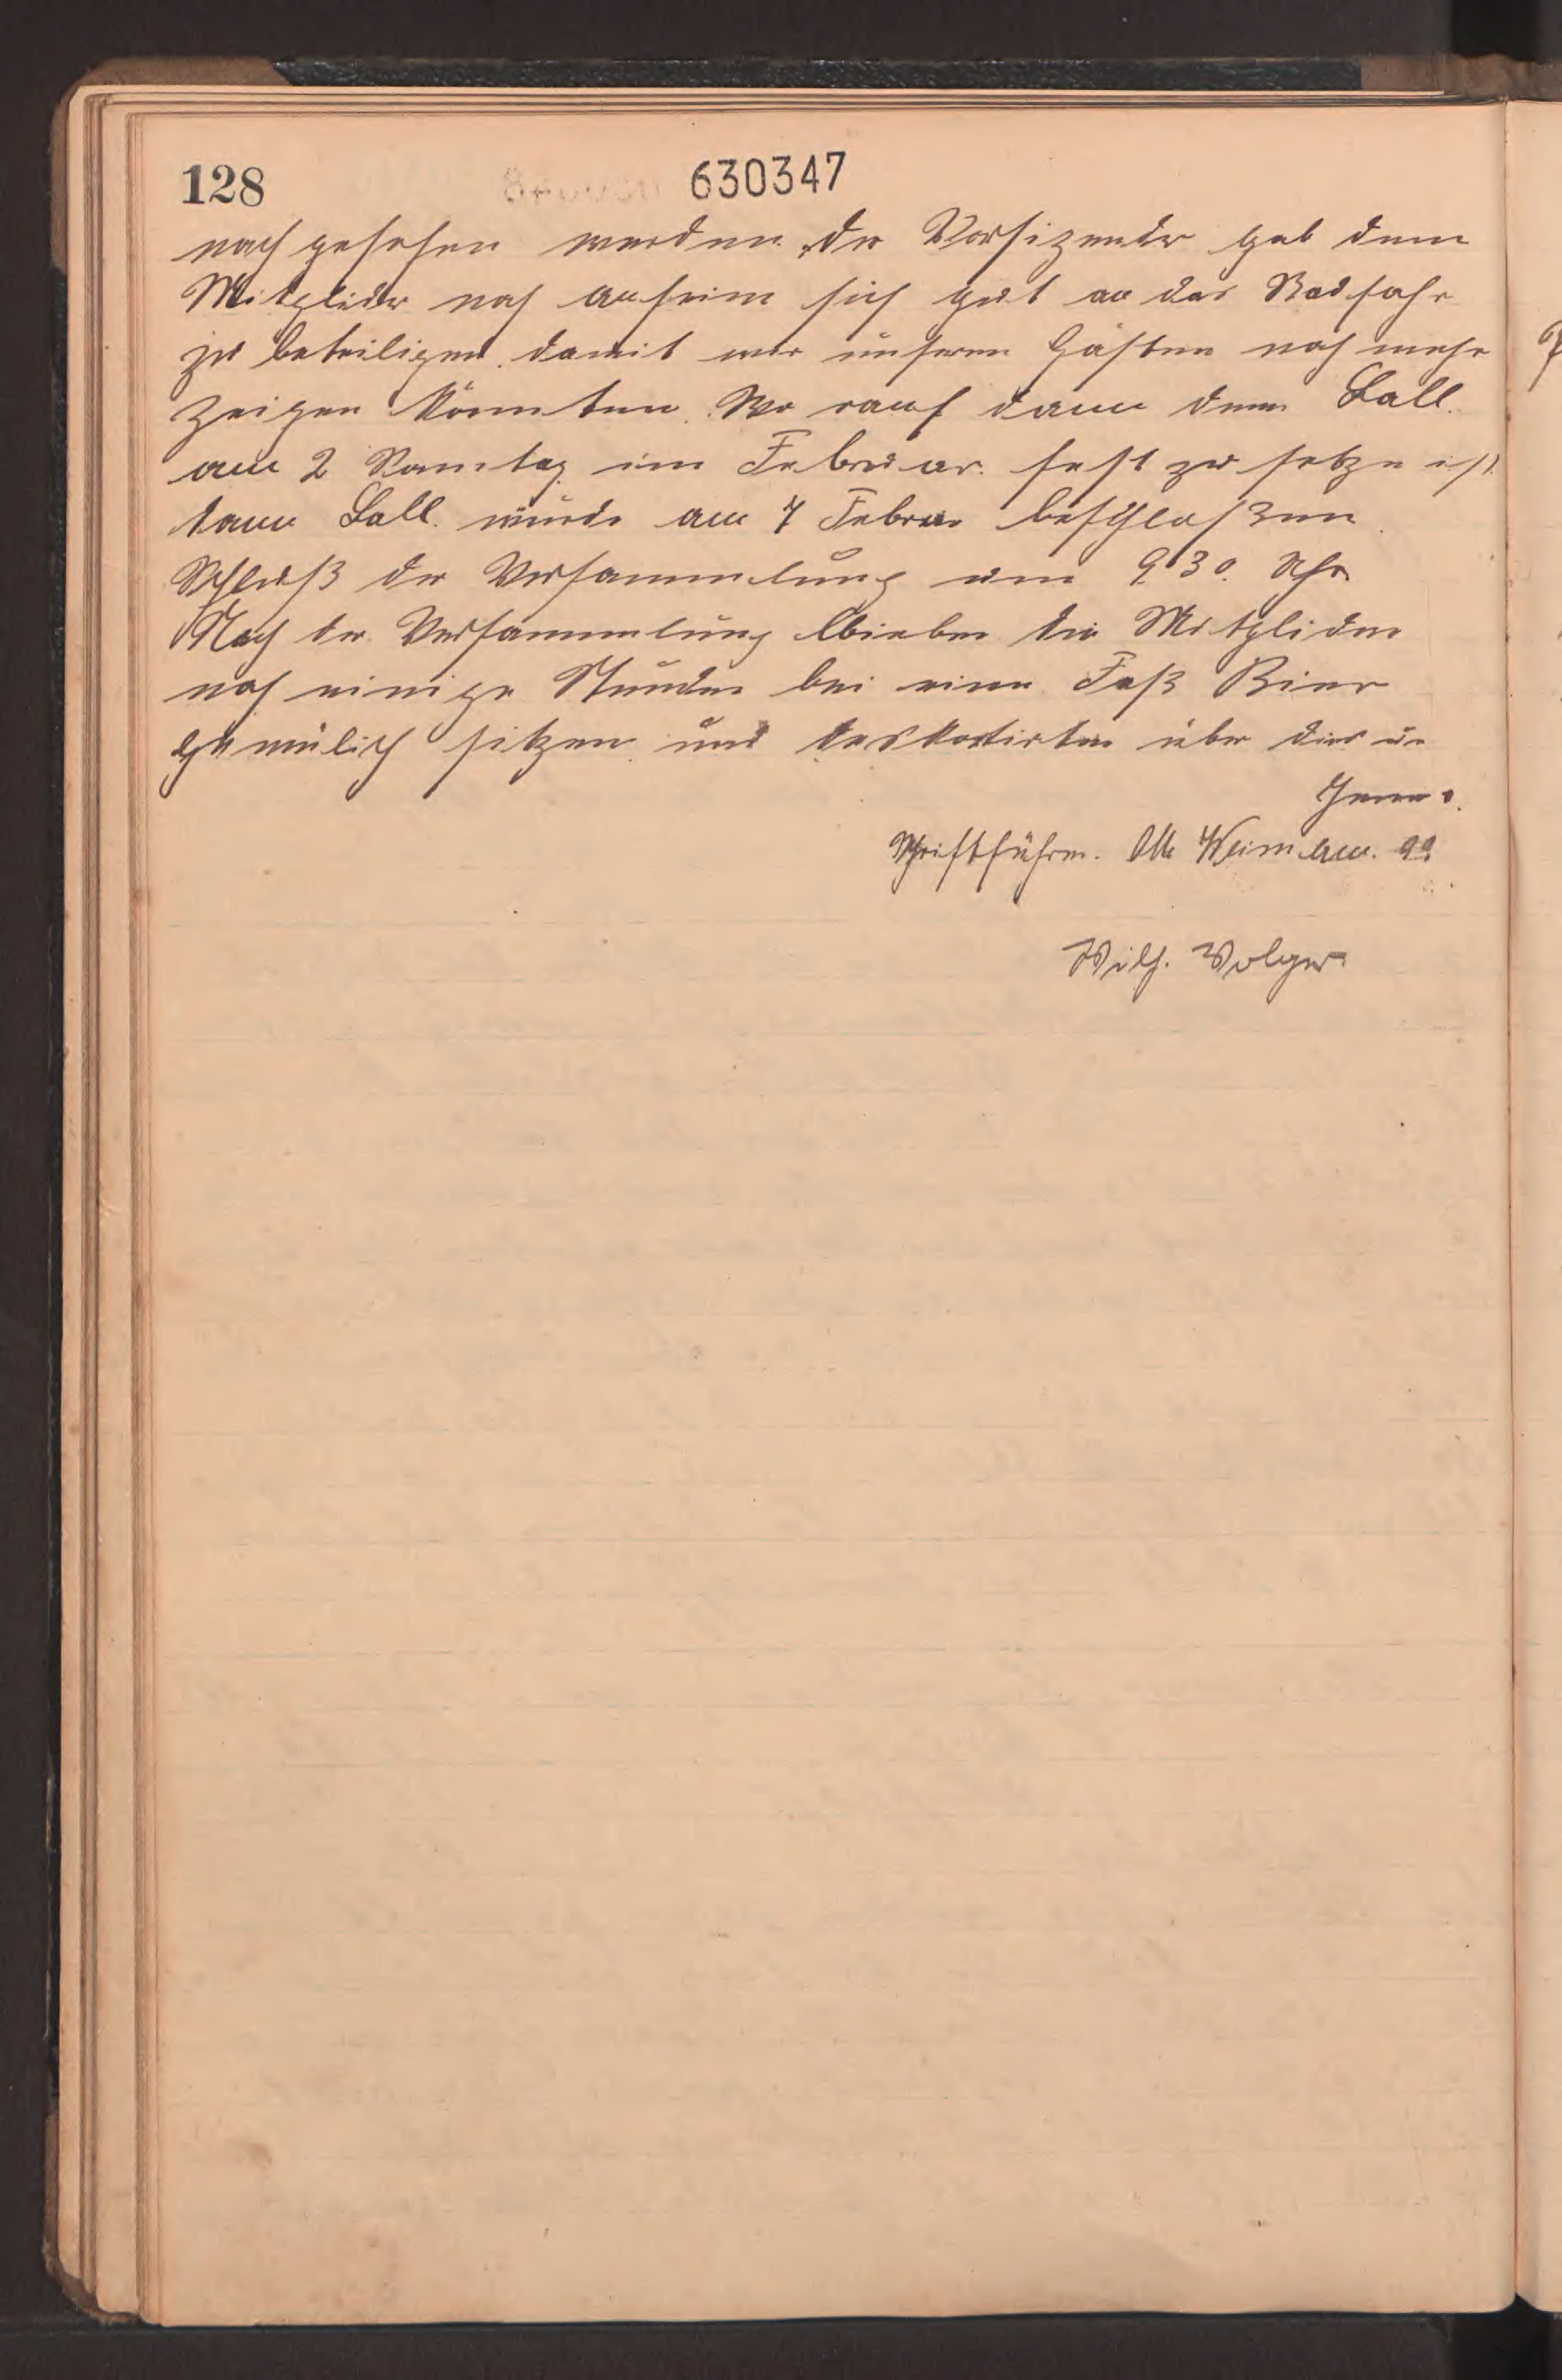 128
630347
nach gesehen werden. Der Vorsizender gab dem
Mitglieder noch anheim sich gut an das Radfahr
zu beteiligen damit wir unseren Gästen noch mehr
zeigen könnten. Wo rauf dann denn Ball
am 2 Samtag im Februar fest zu setze ist
dann Ball wurde am 7 Februar beschlaßen
Schluß der Versammlung um 930. Uhr
Nach der Versammlung blieben die Mitglieder
noch einige Stunden bei einen Faß Bier
gemülich sitzen und über dies un
Jenes.
Schriftführer. Otto
Wilh. Volger